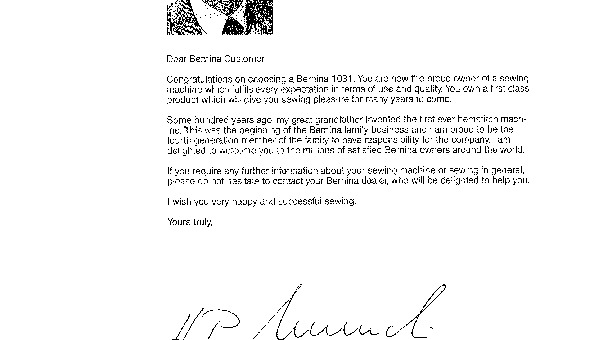 Dear Bernina Customer
Congratulations on choosing a Bernina 1031. You are now the proud owner of a sewing
machine which fulfils every expectation in terms of use and quality. You own a first class
product which will give you sewing pleasure for many years to come.
Some hundred years ago, my great grandfather invented the first ever hemstitch mach-
ine. This was the beginning of the Bernina family business and I am proud to be the
fourth generation member of the family to have responsibility for the company. I am
delighted to welcome you to the millions of satisfied Bernina owners around the world.
If you require any further information about your sewing machine or sewing in general,
please do not hesitate to contact your Bernina dealer, who will be delighted to help you.
I wish you very happy and successful sewing.
Yours truly,